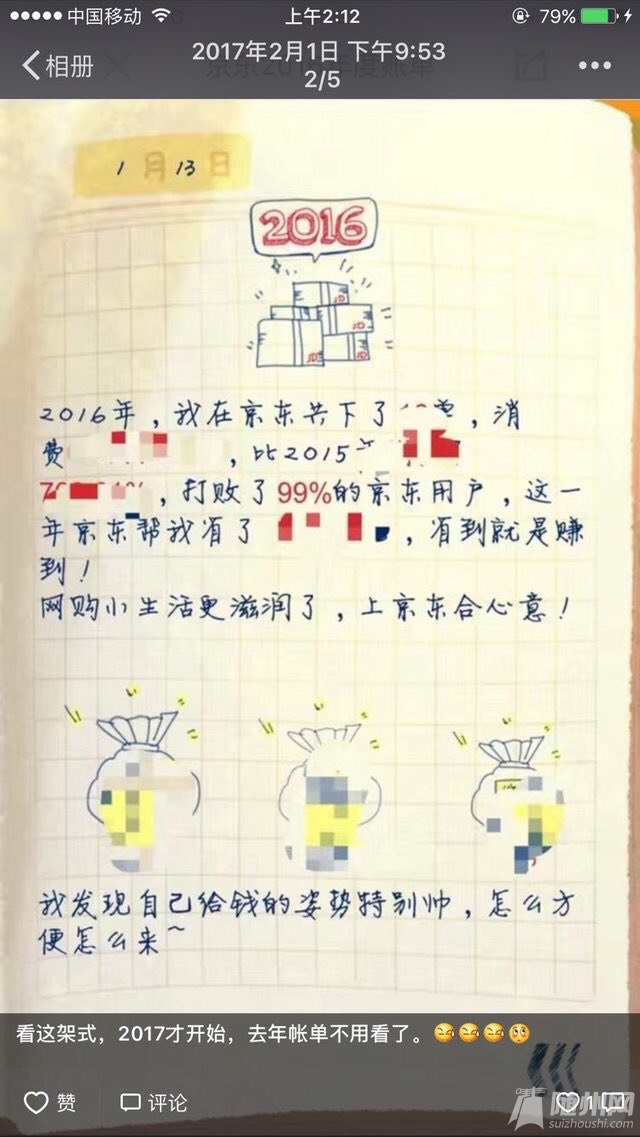 中国移动
上午2:12
79%
相册
2017年2月1日 下午9:53
2/5
京东2016年度账单
1月13日
2016
JD
JD
JD
JD
2016年，我在京东共下了 单，消
费 ，比2015
，打败了99%的京东用户，这一
年京东帮我省了 ，省到就是赚
到！
网购小生活更滋润了，上京东合心意！
我发现自己给钱的姿势特别帅，怎么方
便怎么来~
看这架式，2017才开始，去年帐单不用看了。
赞
评论
1
随州网
suizhoushi.com